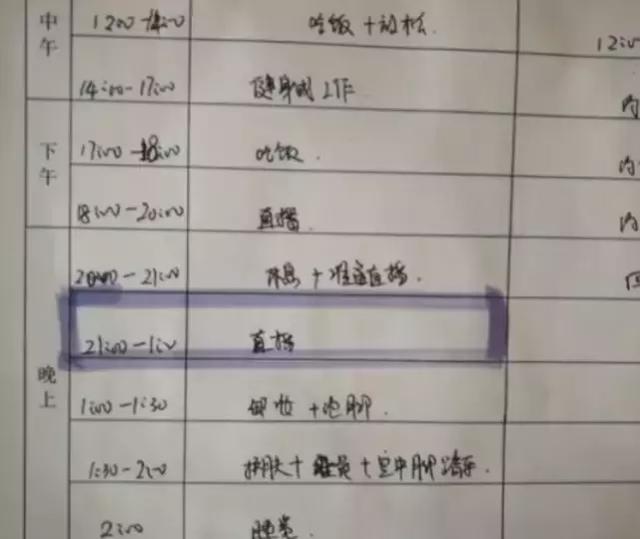 中午
12:00-14:00 吃饭+放松. 12:00
14:00-17:00 健身或工作 内
下午
17:00-18:00 吃饭. 内
18:00-20:00 直播. 内
晚上
20:00-21:00 休息+准备直播.
21:00-1:00 直播
1:00-1:30 卸妆+泡脚.
1:30-2:00 护肤++空中脚踏车.
2:00 睡觉.